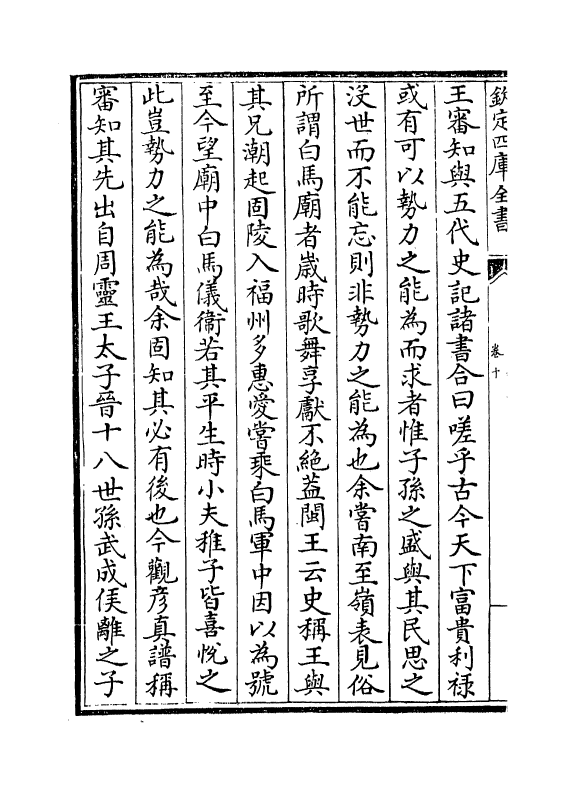 欽定四庫全書
卷十
王審知與五代史記諸書合曰嗟乎古今天下富貴利祿
或有可以勢力之能為而求者惟子孫之盛與其民思之
沒世而不能忘則非勢力之能為也余嘗南至嶺表見俗
所謂白馬廟者歲時歌舞享獻不絕葢閩王云史稱王與
其兄潮起固陵入福州多惠愛嘗乘白馬軍中因以為號
至今望廟中白馬儀衛若其平生時小夫稚子皆喜悅之
此豈勢力之能為哉余固知其必有後也今觀彦真譜稱
審知其先出自周靈王太子晉十八世孫武成侯離之子